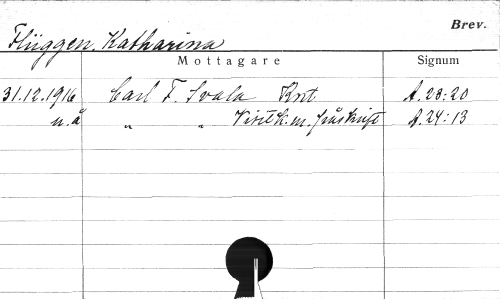 Brev.
Flüggen, Katharina
Mottagare Signum
31.12.1916 Carl F. Svala Krt A.28:20
u.å " " Visitk. m. påskrift A.24:13